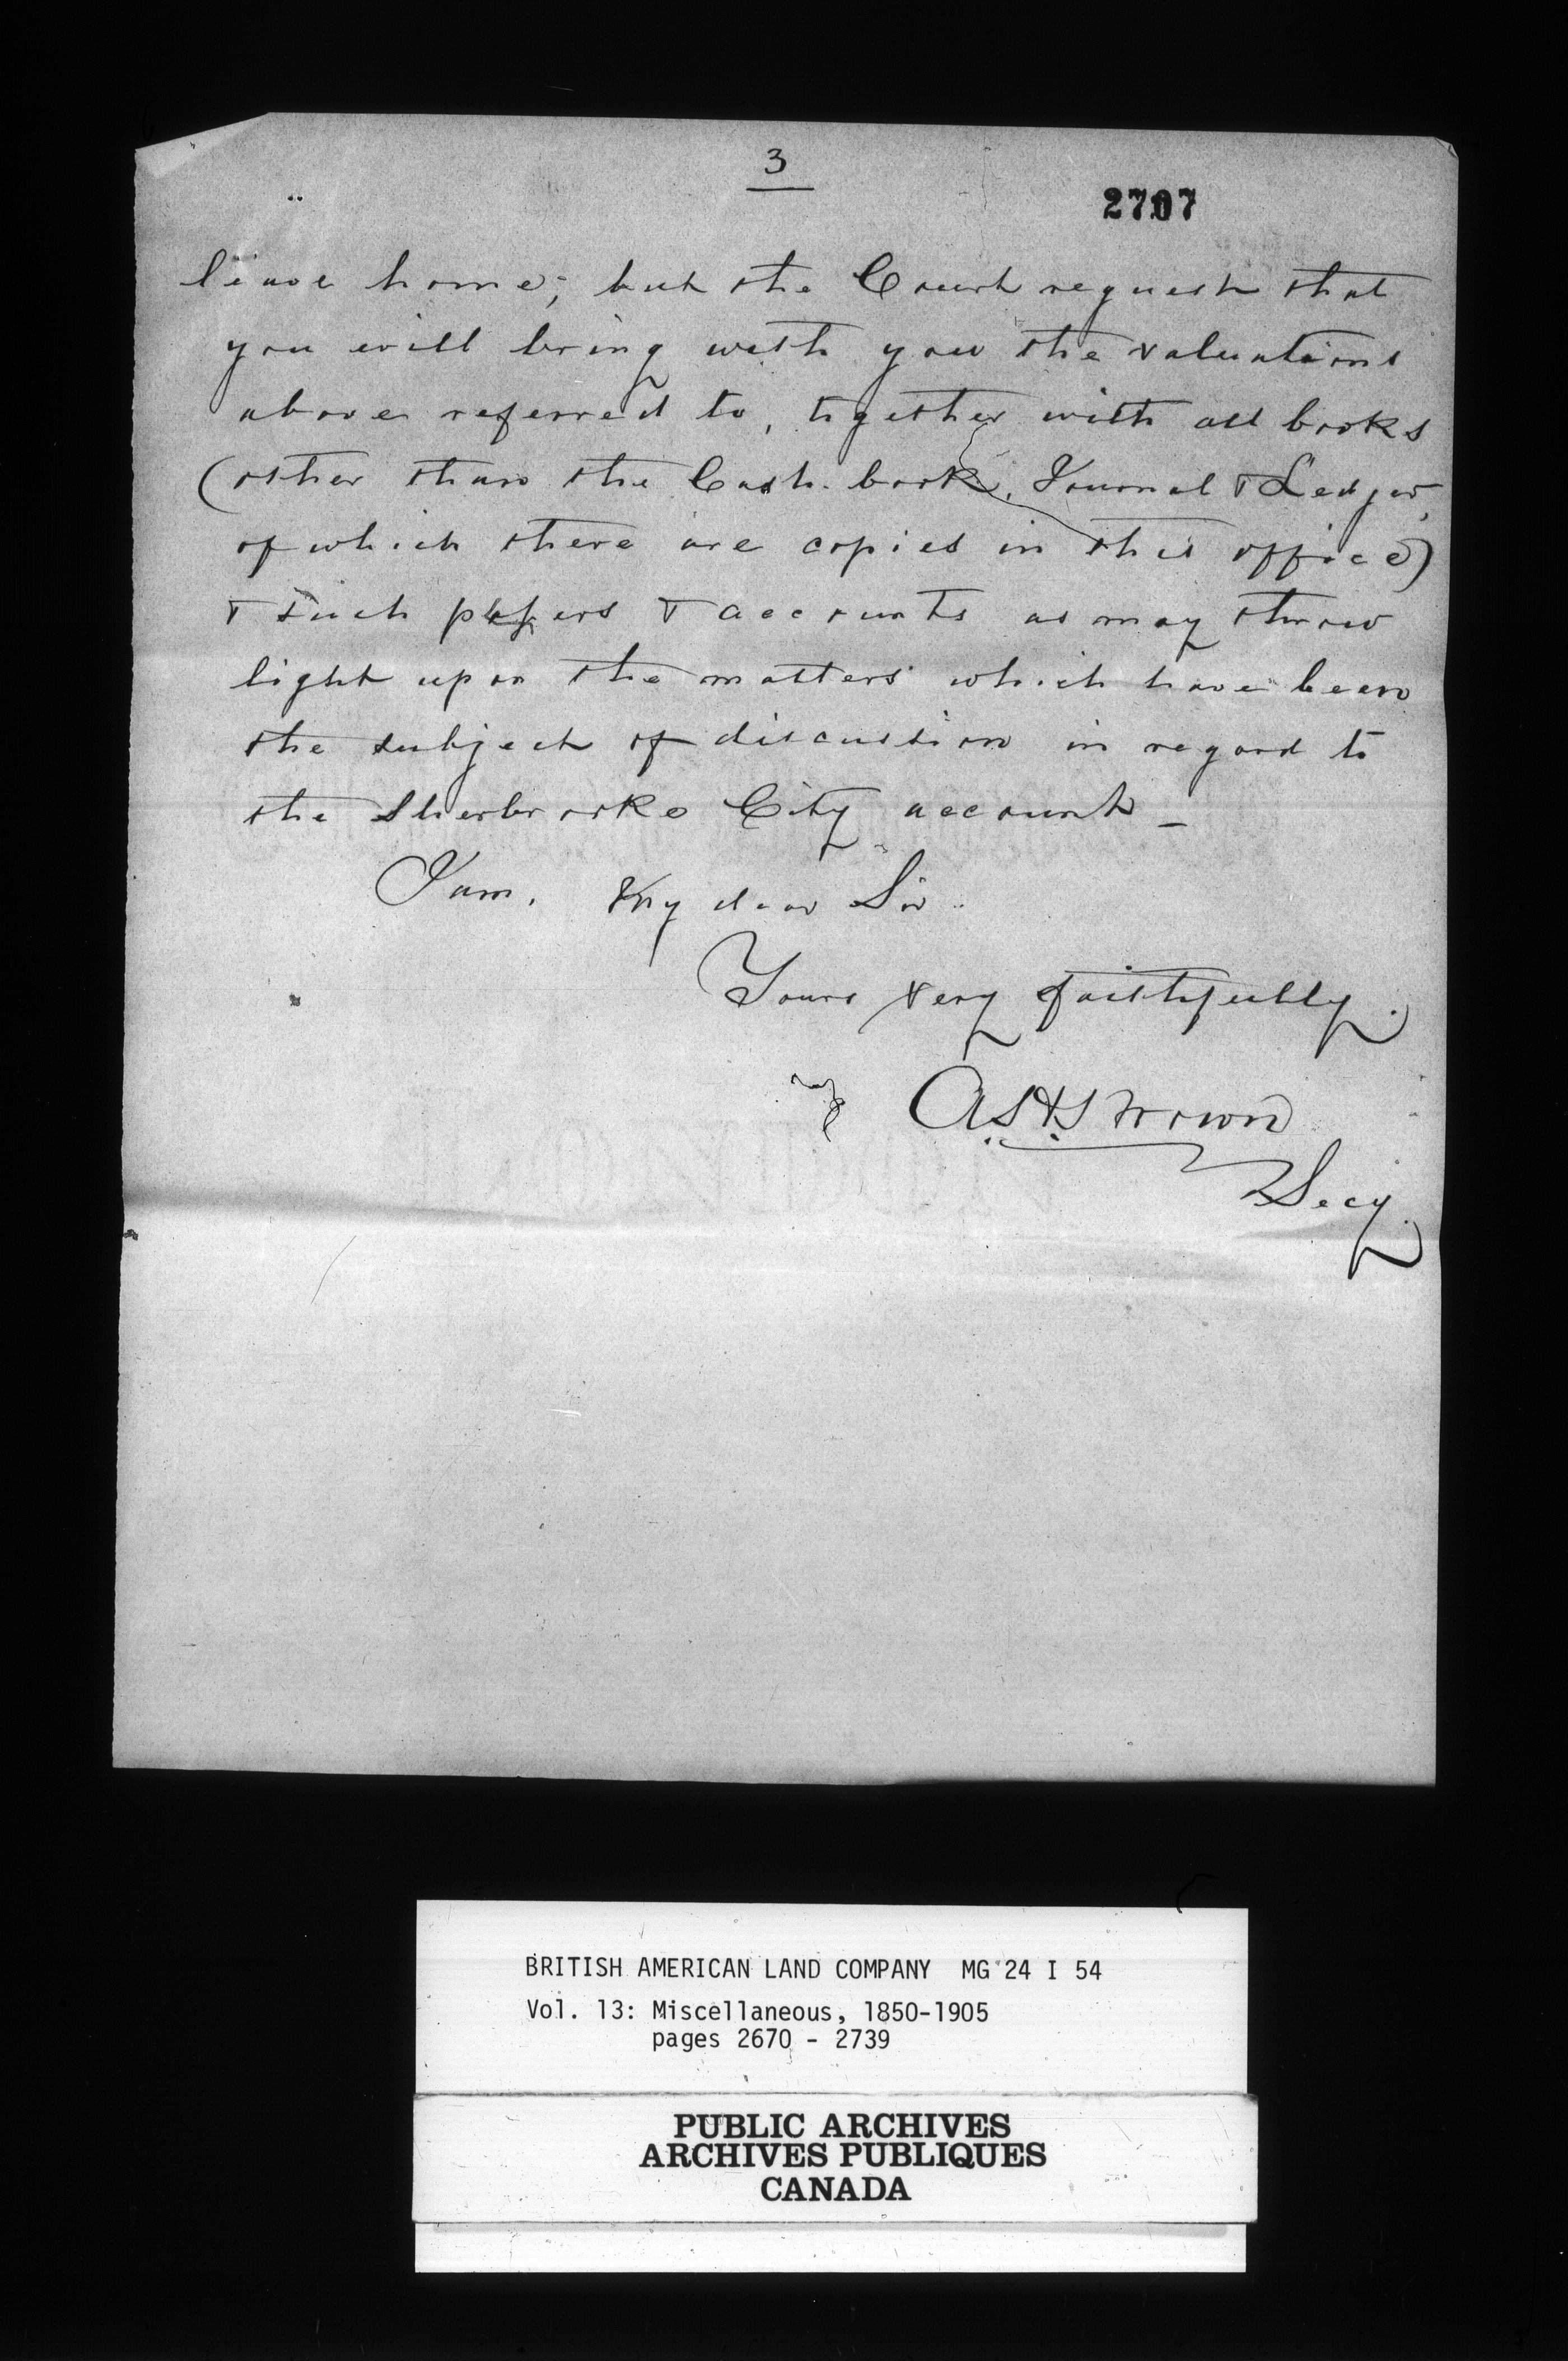 3
2707
leave home; but the Court request that
you will bring with you the valuations
above referred to, together with all books
(other than the Cash-book, Journal & Ledger,
of which there are copies in this office)
& such papers & accounts as may throw
light upon the matters which have been
the subject of discussion in regard to
the Sherbrooke City account –
I am, My dear Sir
Yours very faithfully.
Secy.
BRITISH AMERICAN LAND COMPANY MG 24 I 54
Vol. 13: Miscellaneous, 1850-1905
pages 2670 - 2739
PUBLIC ARCHIVES
ARCHIVES PUBLIQUES
CANADA